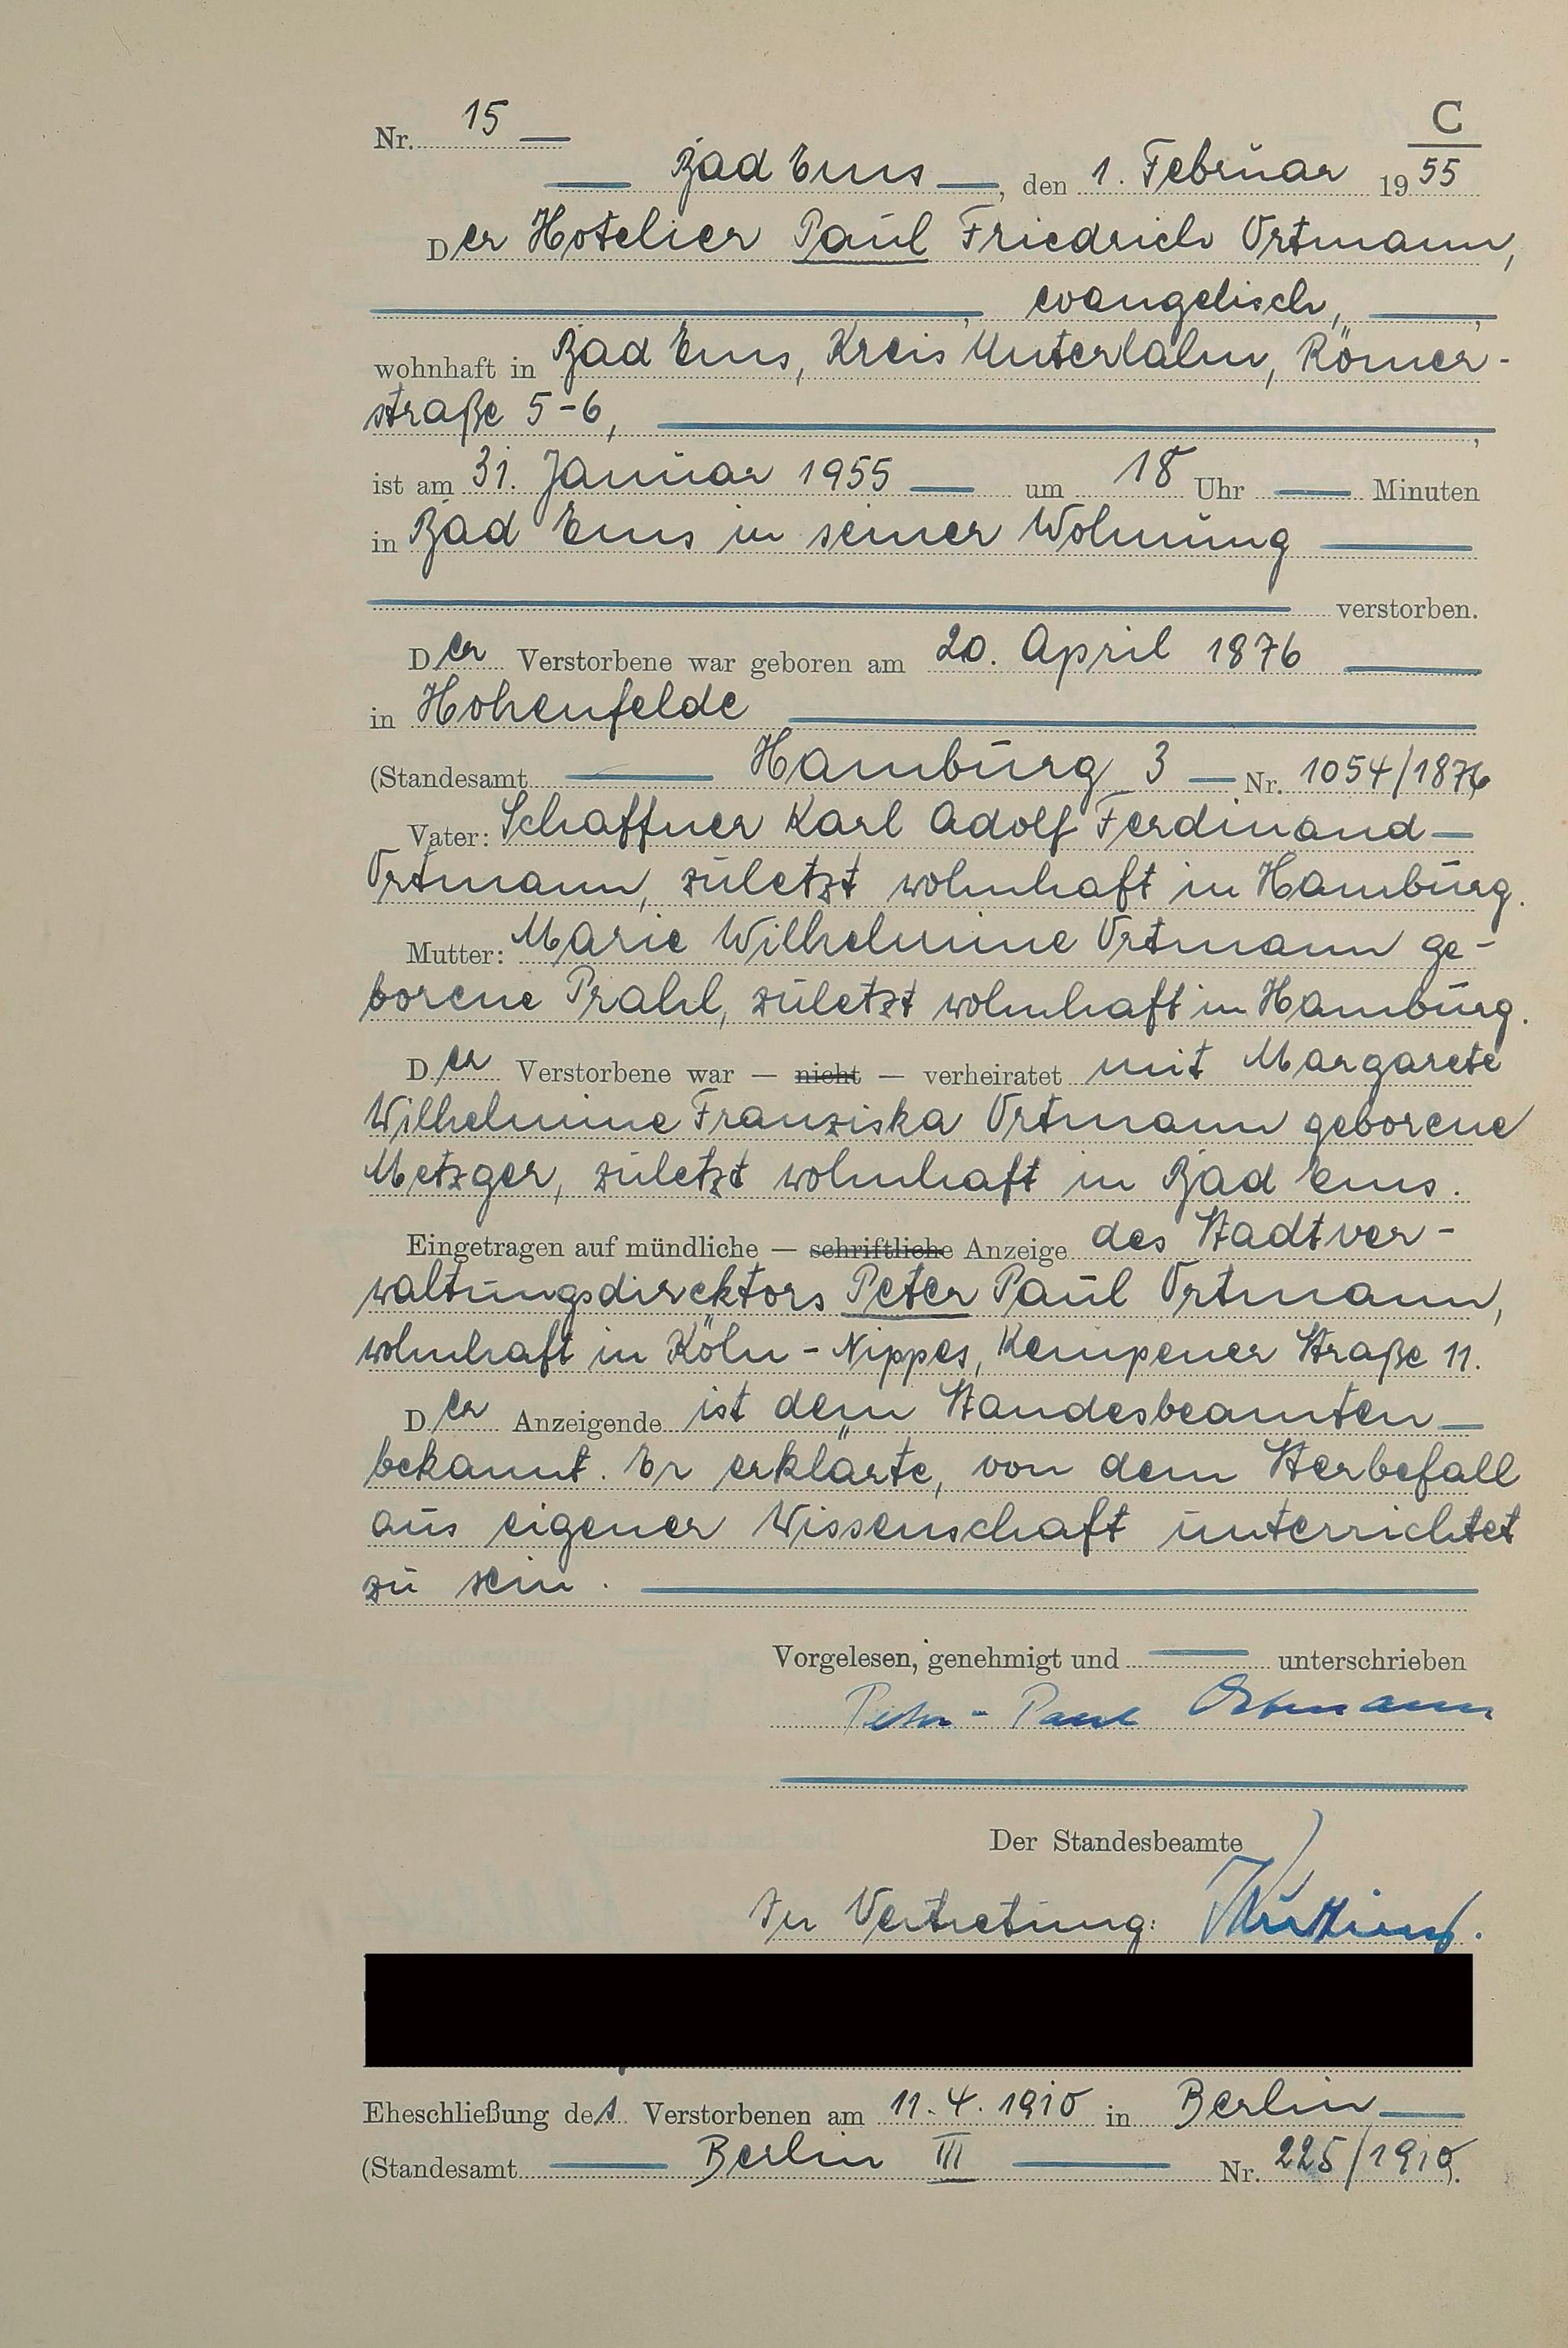 C
Nr. 15 — 55
— Bad Ems —, den 1. Februar 1955
Der Hotelier Paul Friedrich Ortmann,
—, evangelisch, —,
wohnhaft in Bad Ems, Kreis Unterlahn, Römer-
straße 5-6, —,
ist am 31. Januar 1955 — um 18 Uhr — Minuten
in Bad Ems in seiner Wohnung —
— verstorben.
Der Verstorbene war geboren am 20. April 1876 —
in Hohenfelde —
(Standesamt — Hamburg 3 — Nr. 1054/1876
Vater: Schaffner Karl Adolf Ferdinand —
Ortmann, zuletzt wohnhaft in Hamburg.
Mutter: Marie Wilhelmine Ortmann ge-
borene Prahl, zuletzt wohnhaft in Hamburg.
Der Verstorbene war — nicht — verheiratet mit Margarete
Wilhelmine Franziska Ortmann geborene
Metzger, zuletzt wohnhaft in Bad Ems.
Eingetragen auf mündliche — schriftliche Anzeige des Stadtver-
waltungsdirektors Peter Paul Ortmann,
wohnhaft in Köln-Nippes, Kempener Straße 11.
Der Anzeigende ist dem Standesbeamten —
bekannt. Er erklärte, von dem Sterbefall
aus eigener Wissenschaft unterrichtet
zu sein. —
Vorgelesen, genehmigt und — unterschrieben
Peter-Paul Ortmann
Der Standesbeamte
In Vertretung:
Eheschließung des Verstorbenen am 11.4.1910 in Berlin —
(Standesamt — Berlin III — Nr. 225/1910).